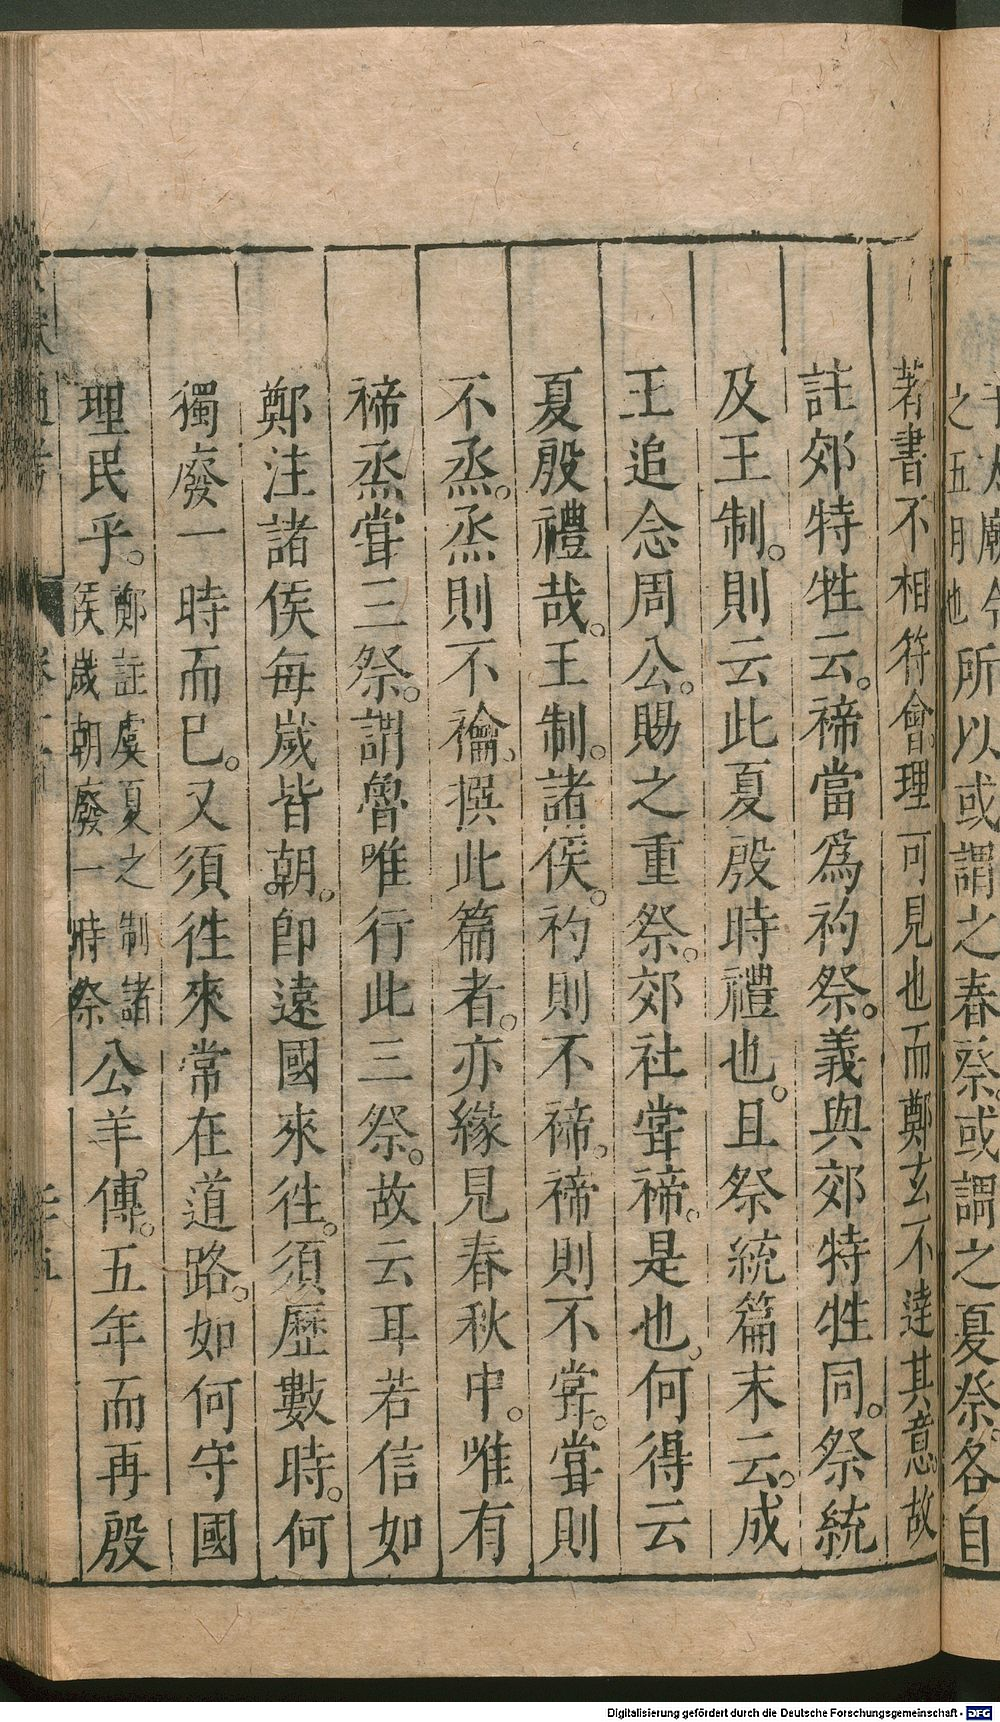 之五月也所以或謂之春祭或謂之夏祭各自
著書不相符會理可見也而鄭玄不達其意故
註郊特牲云禘當爲礿祭義與郊特牲同祭統
及王制則云此夏殷時禮也且祭統篇末云成
王追念周公賜之重祭郊社甞禘是也何得云
夏殷禮哉王制諸侯礿則不禘禘則不甞甞則
不烝烝則不禴撰此篇者亦緣見春秋中唯有
禘烝甞三祭謂魯唯行此三祭故云耳若信如
鄭注諸侯每歲皆朝卽遠國來徃須歷數時何
獨廢一時而已又須徃來常在道路如何守國
理民乎鄭註虞夏之制諸侯歲朝廢一時祭公羊傳五年而再殷
Digitalisierung gefördert durch die Deutsche Forschungsgemeinschaft - DFG